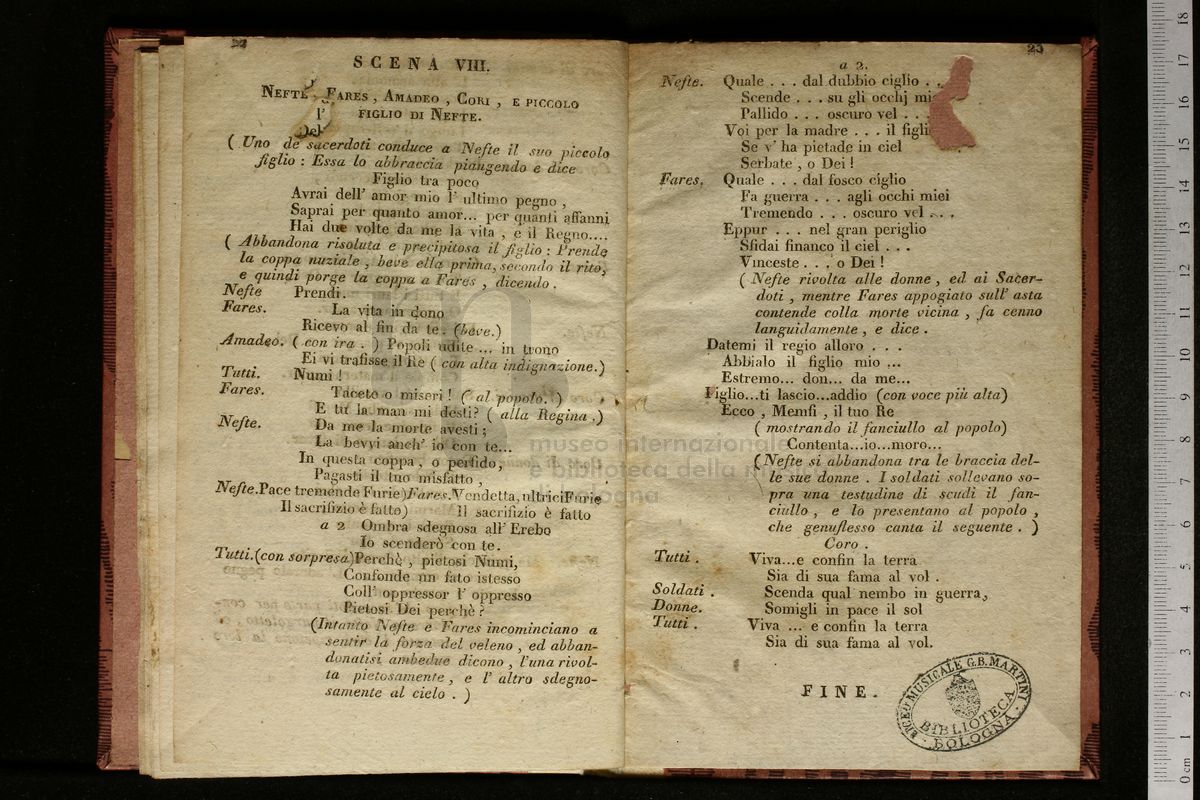 22
SCENA VIII.
NEFTE, FARES, AMADEO, CORI, E PICCOLO
FIGLIO DI NEFTE.
l'
Del
( Uno de sacerdoti conduce a Nefte il suo piccolo
figlio : Essa lo abbraccia piangendo e dice
Figlio tra poco
Avrai dell' amor mio l' ultimo pegno ,
Saprai per quanto amor... per quanti affanni
Hai due volte da me la vita , e il Regno....
( Abbandona risoluta e precipitosa il figlio : Prende
la coppa nuziale , beve ella prima, secondo il rito,
e quindi porge la coppa a Fares , dicendo .
Nefte Prendi.
Fares. La vita in dono
Ricevo al fin da te. (beve.)
Amadeo. ( con ira . ) Popoli udite ... in trono
Ei vi trafisse il Re ( con alta indignazione.)
Tutti. Numi !
Fares. Tacete o miseri ! ( al popolo. )
E tu la man mi desti? ( alla Regina .)
Nefte. Da me la morte avesti ;
La bevvi anch' io con te...
In questa coppa , o perfido,
Pagasti il tuo misfatto ,
Nefte. Pace tremende Furie) Fares. Vendetta, ultrici Furie
Il sacrifizio è fatto) Il sacrifizio è fatto
a 2 Ombra sdegnosa all' Erebo
Io scenderò con te.
Tutti. (con sorpresa) Perchè , pietosi Numi,
Confonde un fato istesso
Coll' oppressor l' oppresso
Pietosi Dei perchè ?
(Intanto Nefte e Fares incominciano a
sentir la forza del veleno , ed abban-
donatisi ambedue dicono , l'una rivol-
ta pietosamente , e l' altro sdegno-
samente al cielo . )
23
a 2.
Nefte. Quale . . . dal dubbio ciglio . .
Scende . . . su gli occhj mi
Pallido . . . oscuro vel . . .
Voi per la madre . . . il figli
Se v' ha pietade in ciel
Serbate , o Dei !
Fares. Quale . . . dal fosco ciglio
Fa guerra . . . agli occhi miei
Tremendo . . . oscuro vel . . .
Eppur . . . nel gran periglio
Sfidai financo il ciel . . .
Vinceste . . . o Dei !
( Nefte rivolta alle donne , ed ai Sacer-
doti , mentre Fares appogiato sull' asta
contende colla morte vicina , fa cenno
languidamente , e dice .
Datemi il regio alloro . . .
Abbialo il figlio mio ...
Estremo... don... da me...
Figlio...ti lascio...addio (con voce più alta)
Ecco , Memfi , il tuo Re
( mostrando il fanciullo al popolo)
Contenta...io...moro...
( Nefte si abbandona tra le braccia del-
le sue donne . I soldati sollevano so-
pra una testudine di scudi il fan-
ciullo , e lo presentano al popolo ,
che genuflesso canta il seguente . )
Coro .
Tutti . Viva...e confin la terra
Sia di sua fama al vol .
Soldati . Scenda qual nembo in guerra,
Donne. Somigli in pace il sol
Tutti . Viva ... e confin la terra
Sia di sua fama al vol.
FINE.
LICEO MUSICALE G.B. MARTINI
BIBLIOTECA
BOLOGNA
museo internazionale
e biblioteca della musica
di bologna
0 cm 1 2 3 4 5 6 7 8 9 10 11 12 13 14 15 16 17 18